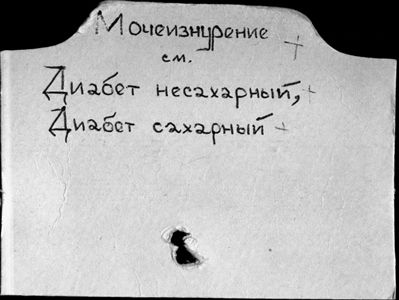 Мочеизнурение +
см.
Диабет несахарный, +
Диабет сахарный +